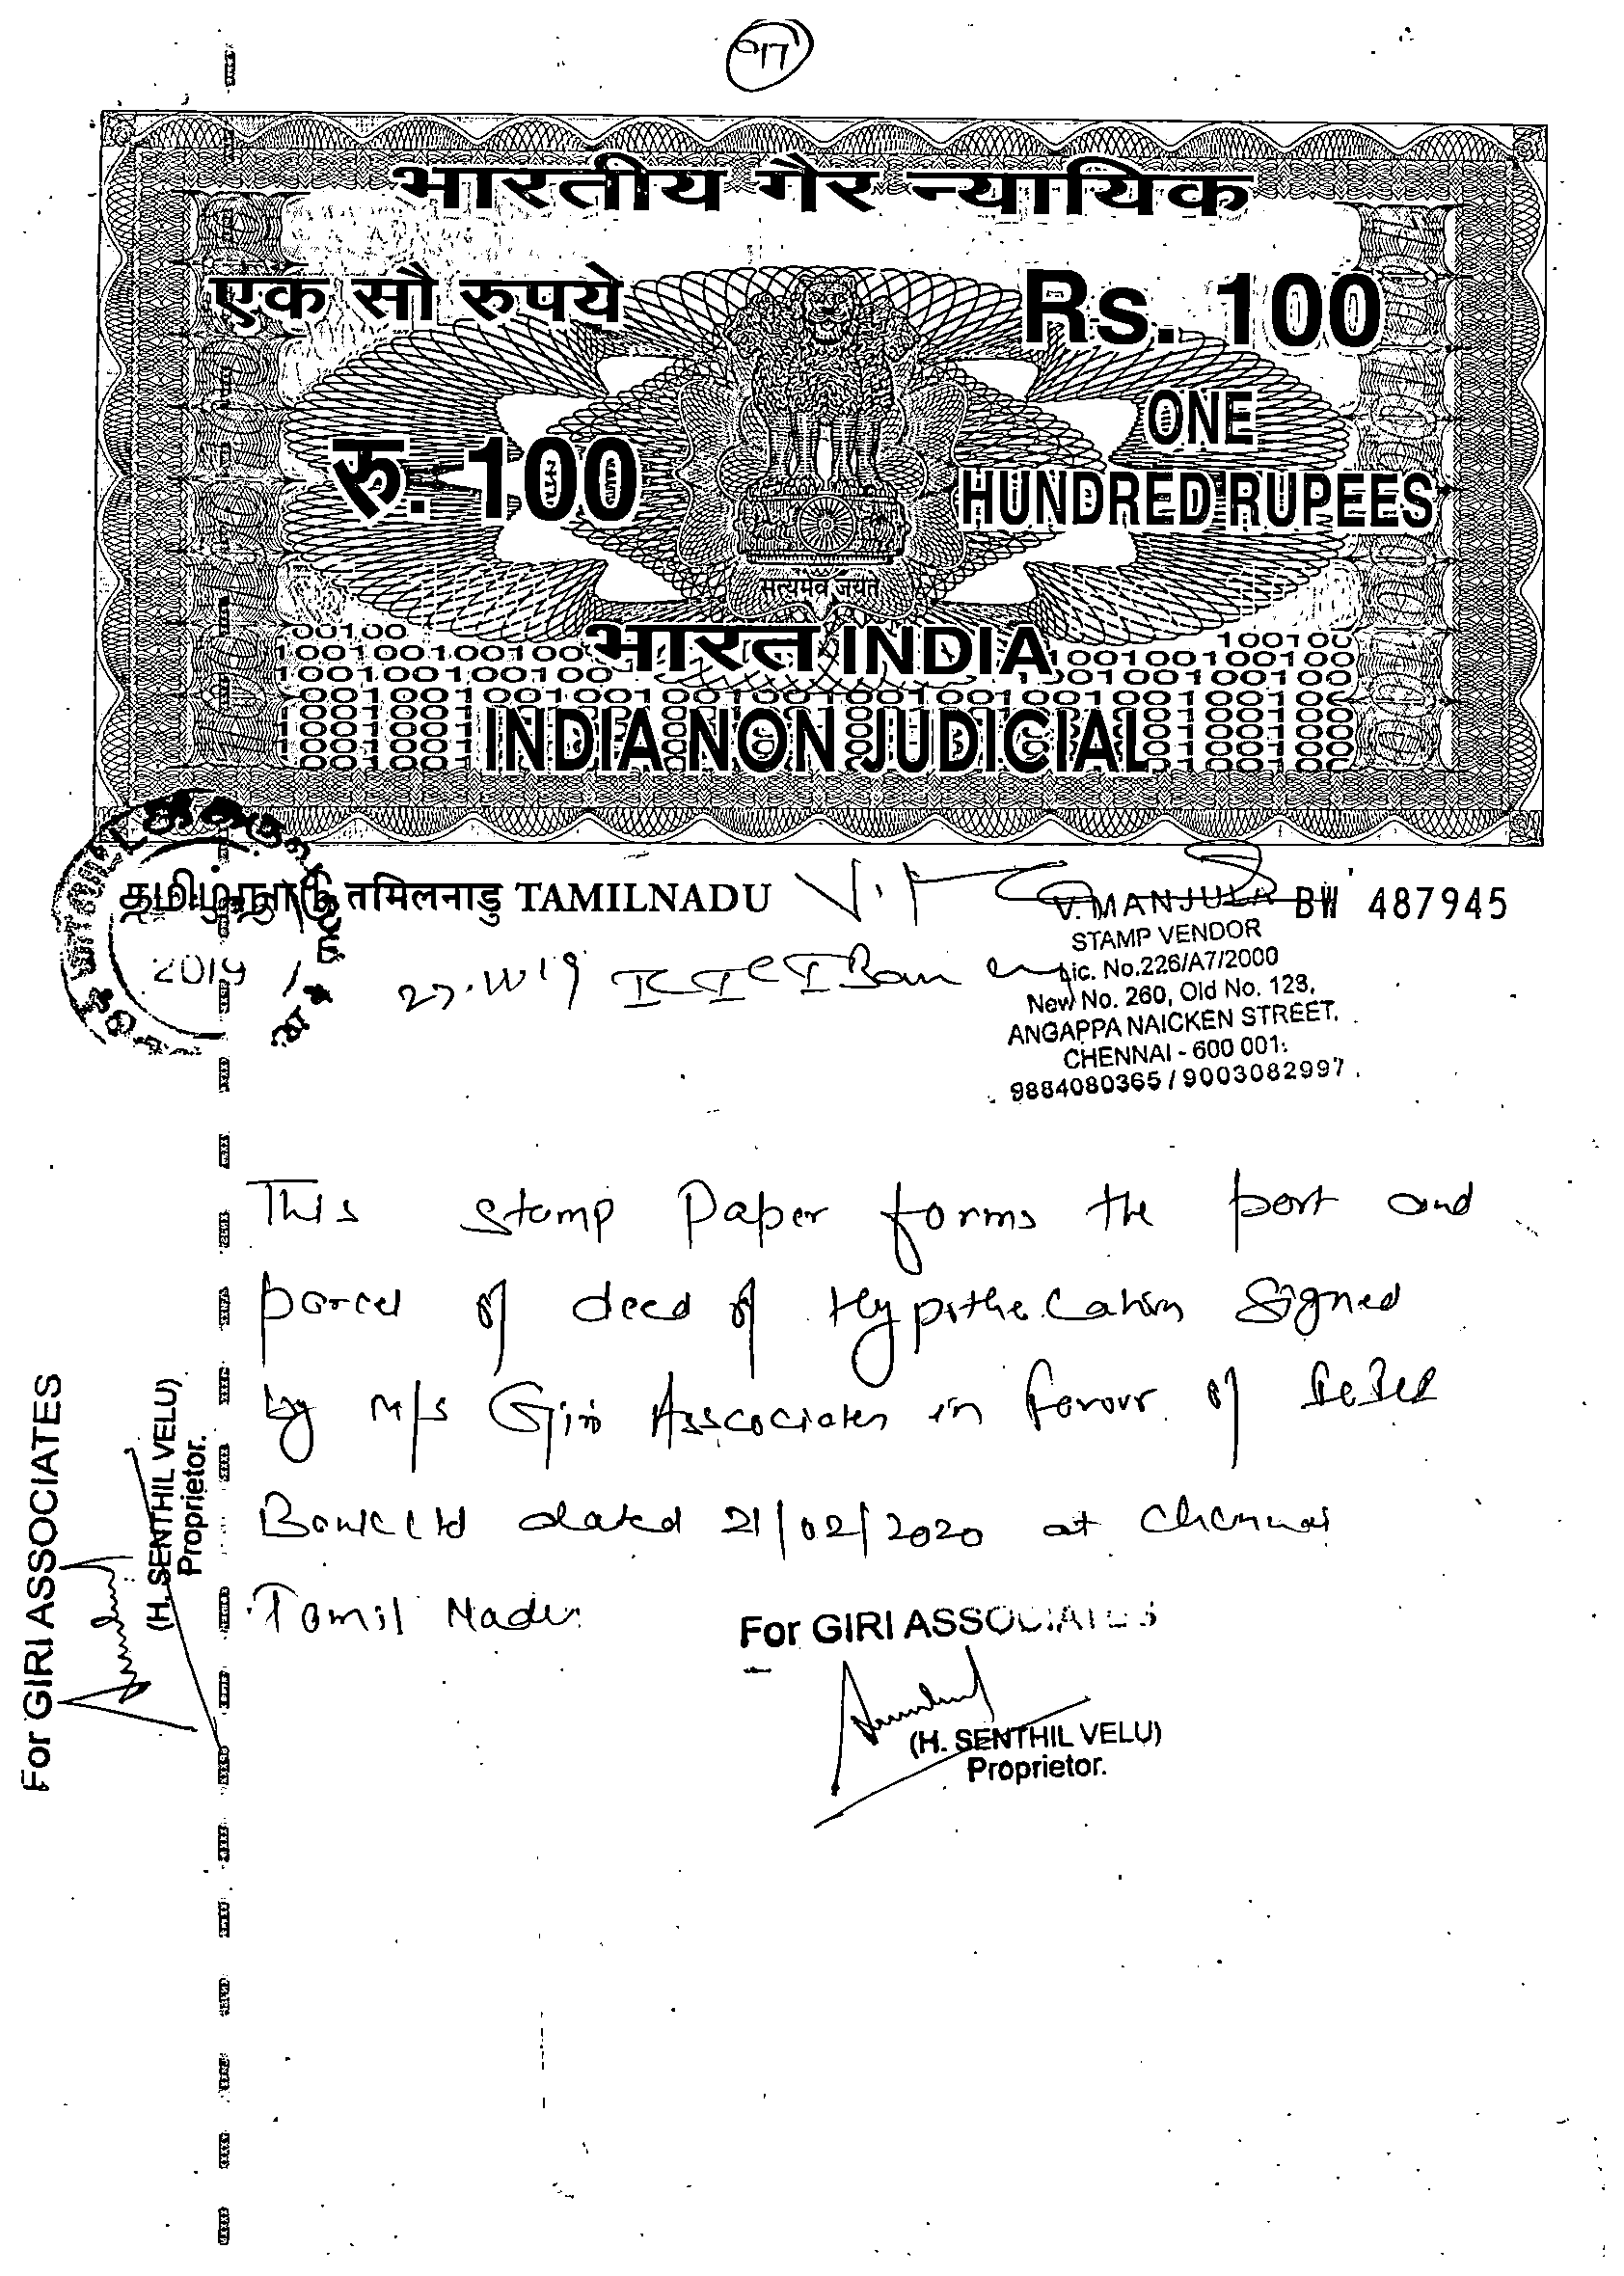 97
भारतीय गैर न्यायिक
एक सौ रुपये
Rs. 100
रु. 100
ONE
HUNDRED RUPEES
सत्यमेव जयते
भारत INDIA
INDIA NON JUDICIAL
தமிழ்நாடு तमिलनाडु TAMILNADU
BW 487945
2019
ICICI Bank
V. MANJULA
STAMP VENDOR
Lic. No.226/A7/2000
New No. 260, Old No. 123,
ANGAPPA NAICKEN STREET,
CHENNAI - 600 001.
9884080365 / 9003082997
This stamp Paper forms the part and
parcel of deed of Hypothecation Signed
by M/s Giri Asscociates in favour of ICICI
Bank Ltd dated 21/02/2020 at Chennai
Tamil Nadu
For GIRI ASSOCIATES
(H. SENTHIL VELU)
Proprietor.
For GIRI ASSOCIATES
(H. SENTHIL VELU)
Proprietor.